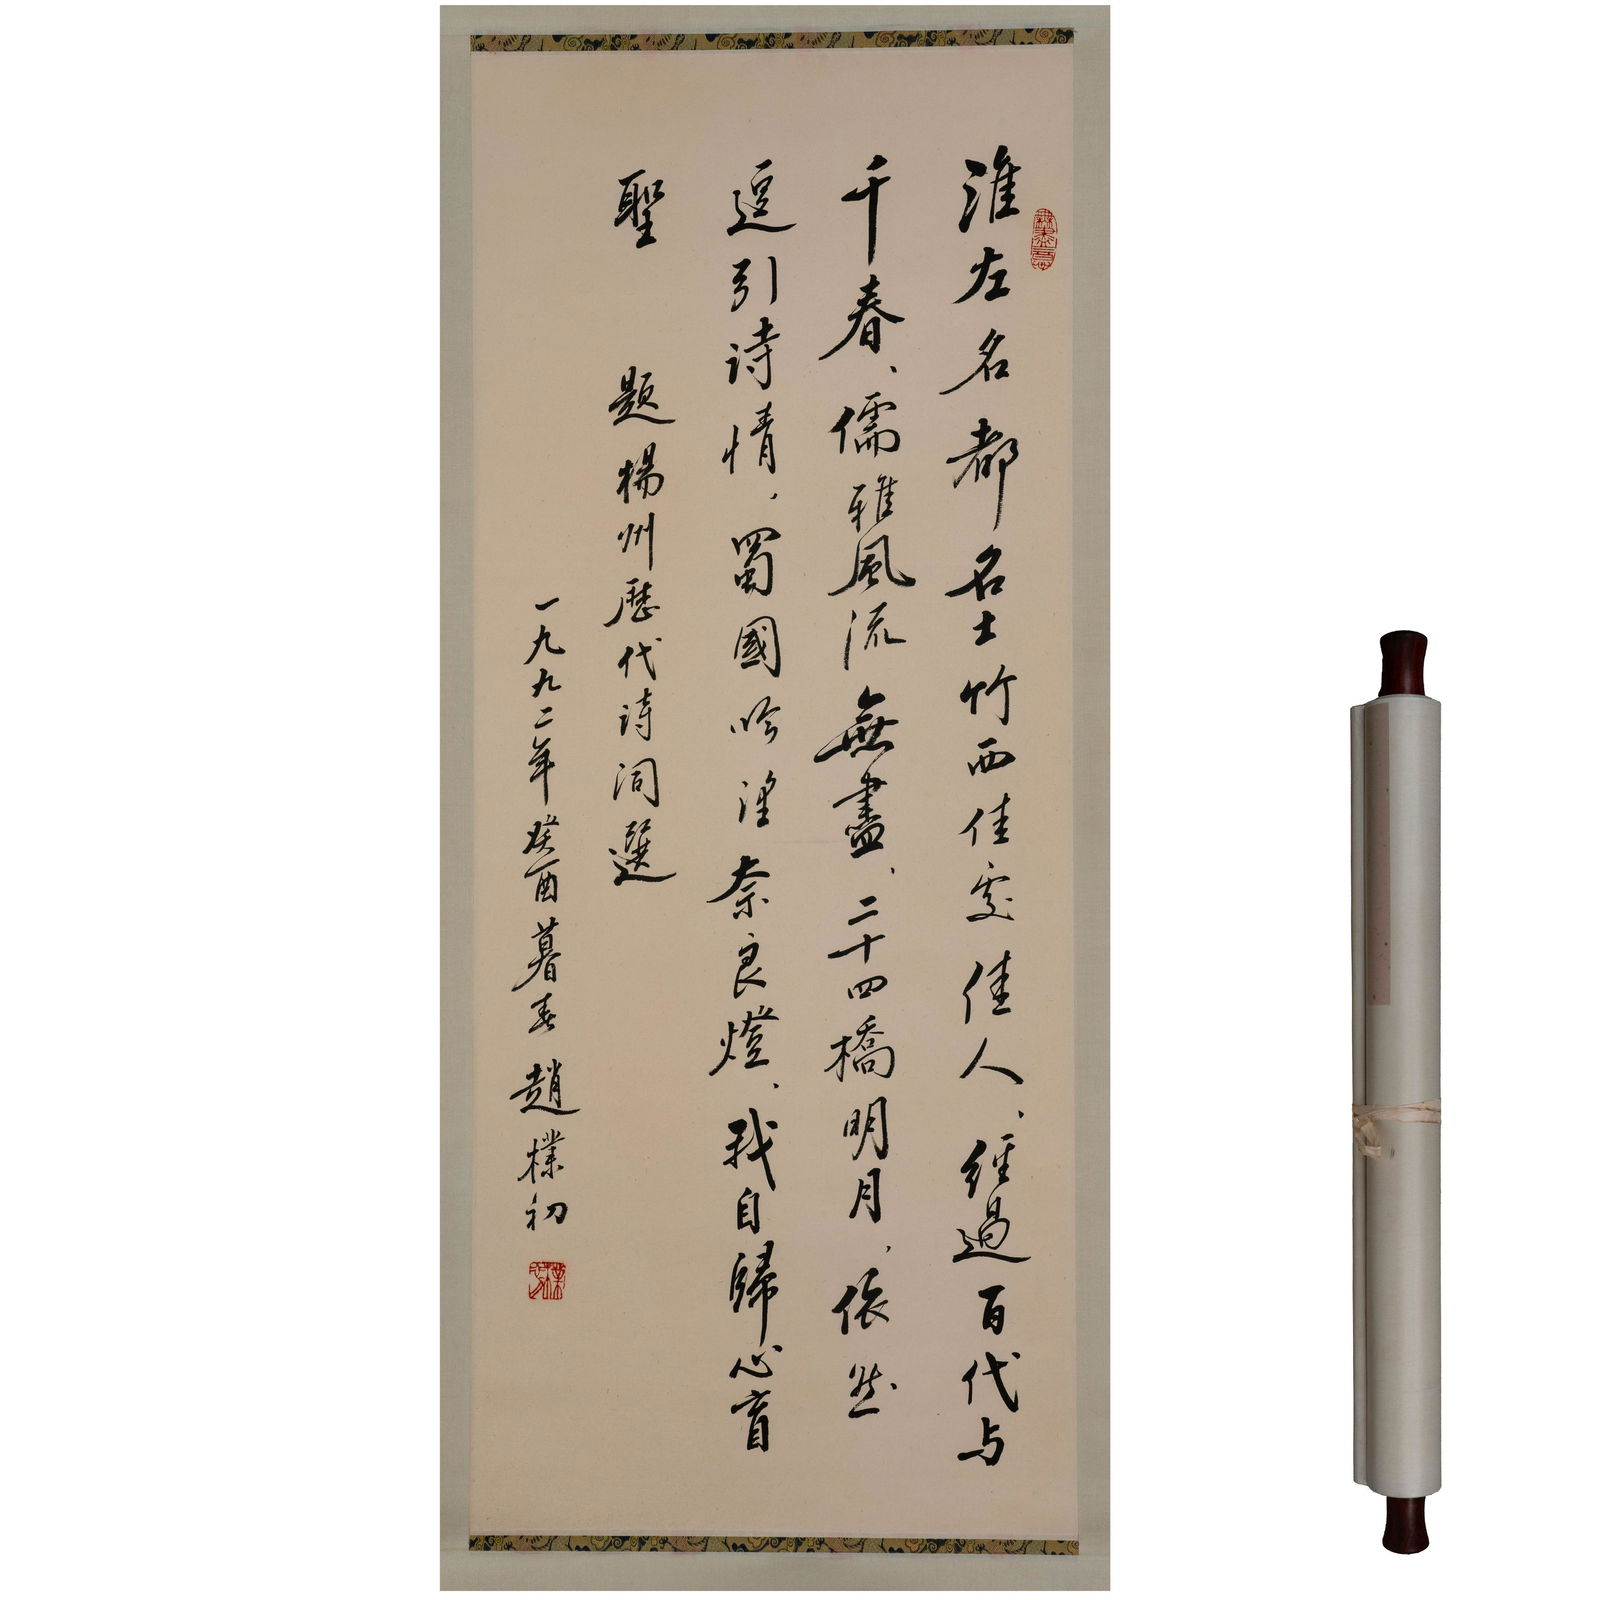 淮左名都名士竹西佳處佳人、經過百代与
千春、儒雅風流無盡、二十四橋明月、依然
逗引诗情、蜀國吟望奈良燈、我自歸心盲
聖　題揚州歷代诗词選
一九九二年癸酉暮春　趙樸初
無盡意
樸初